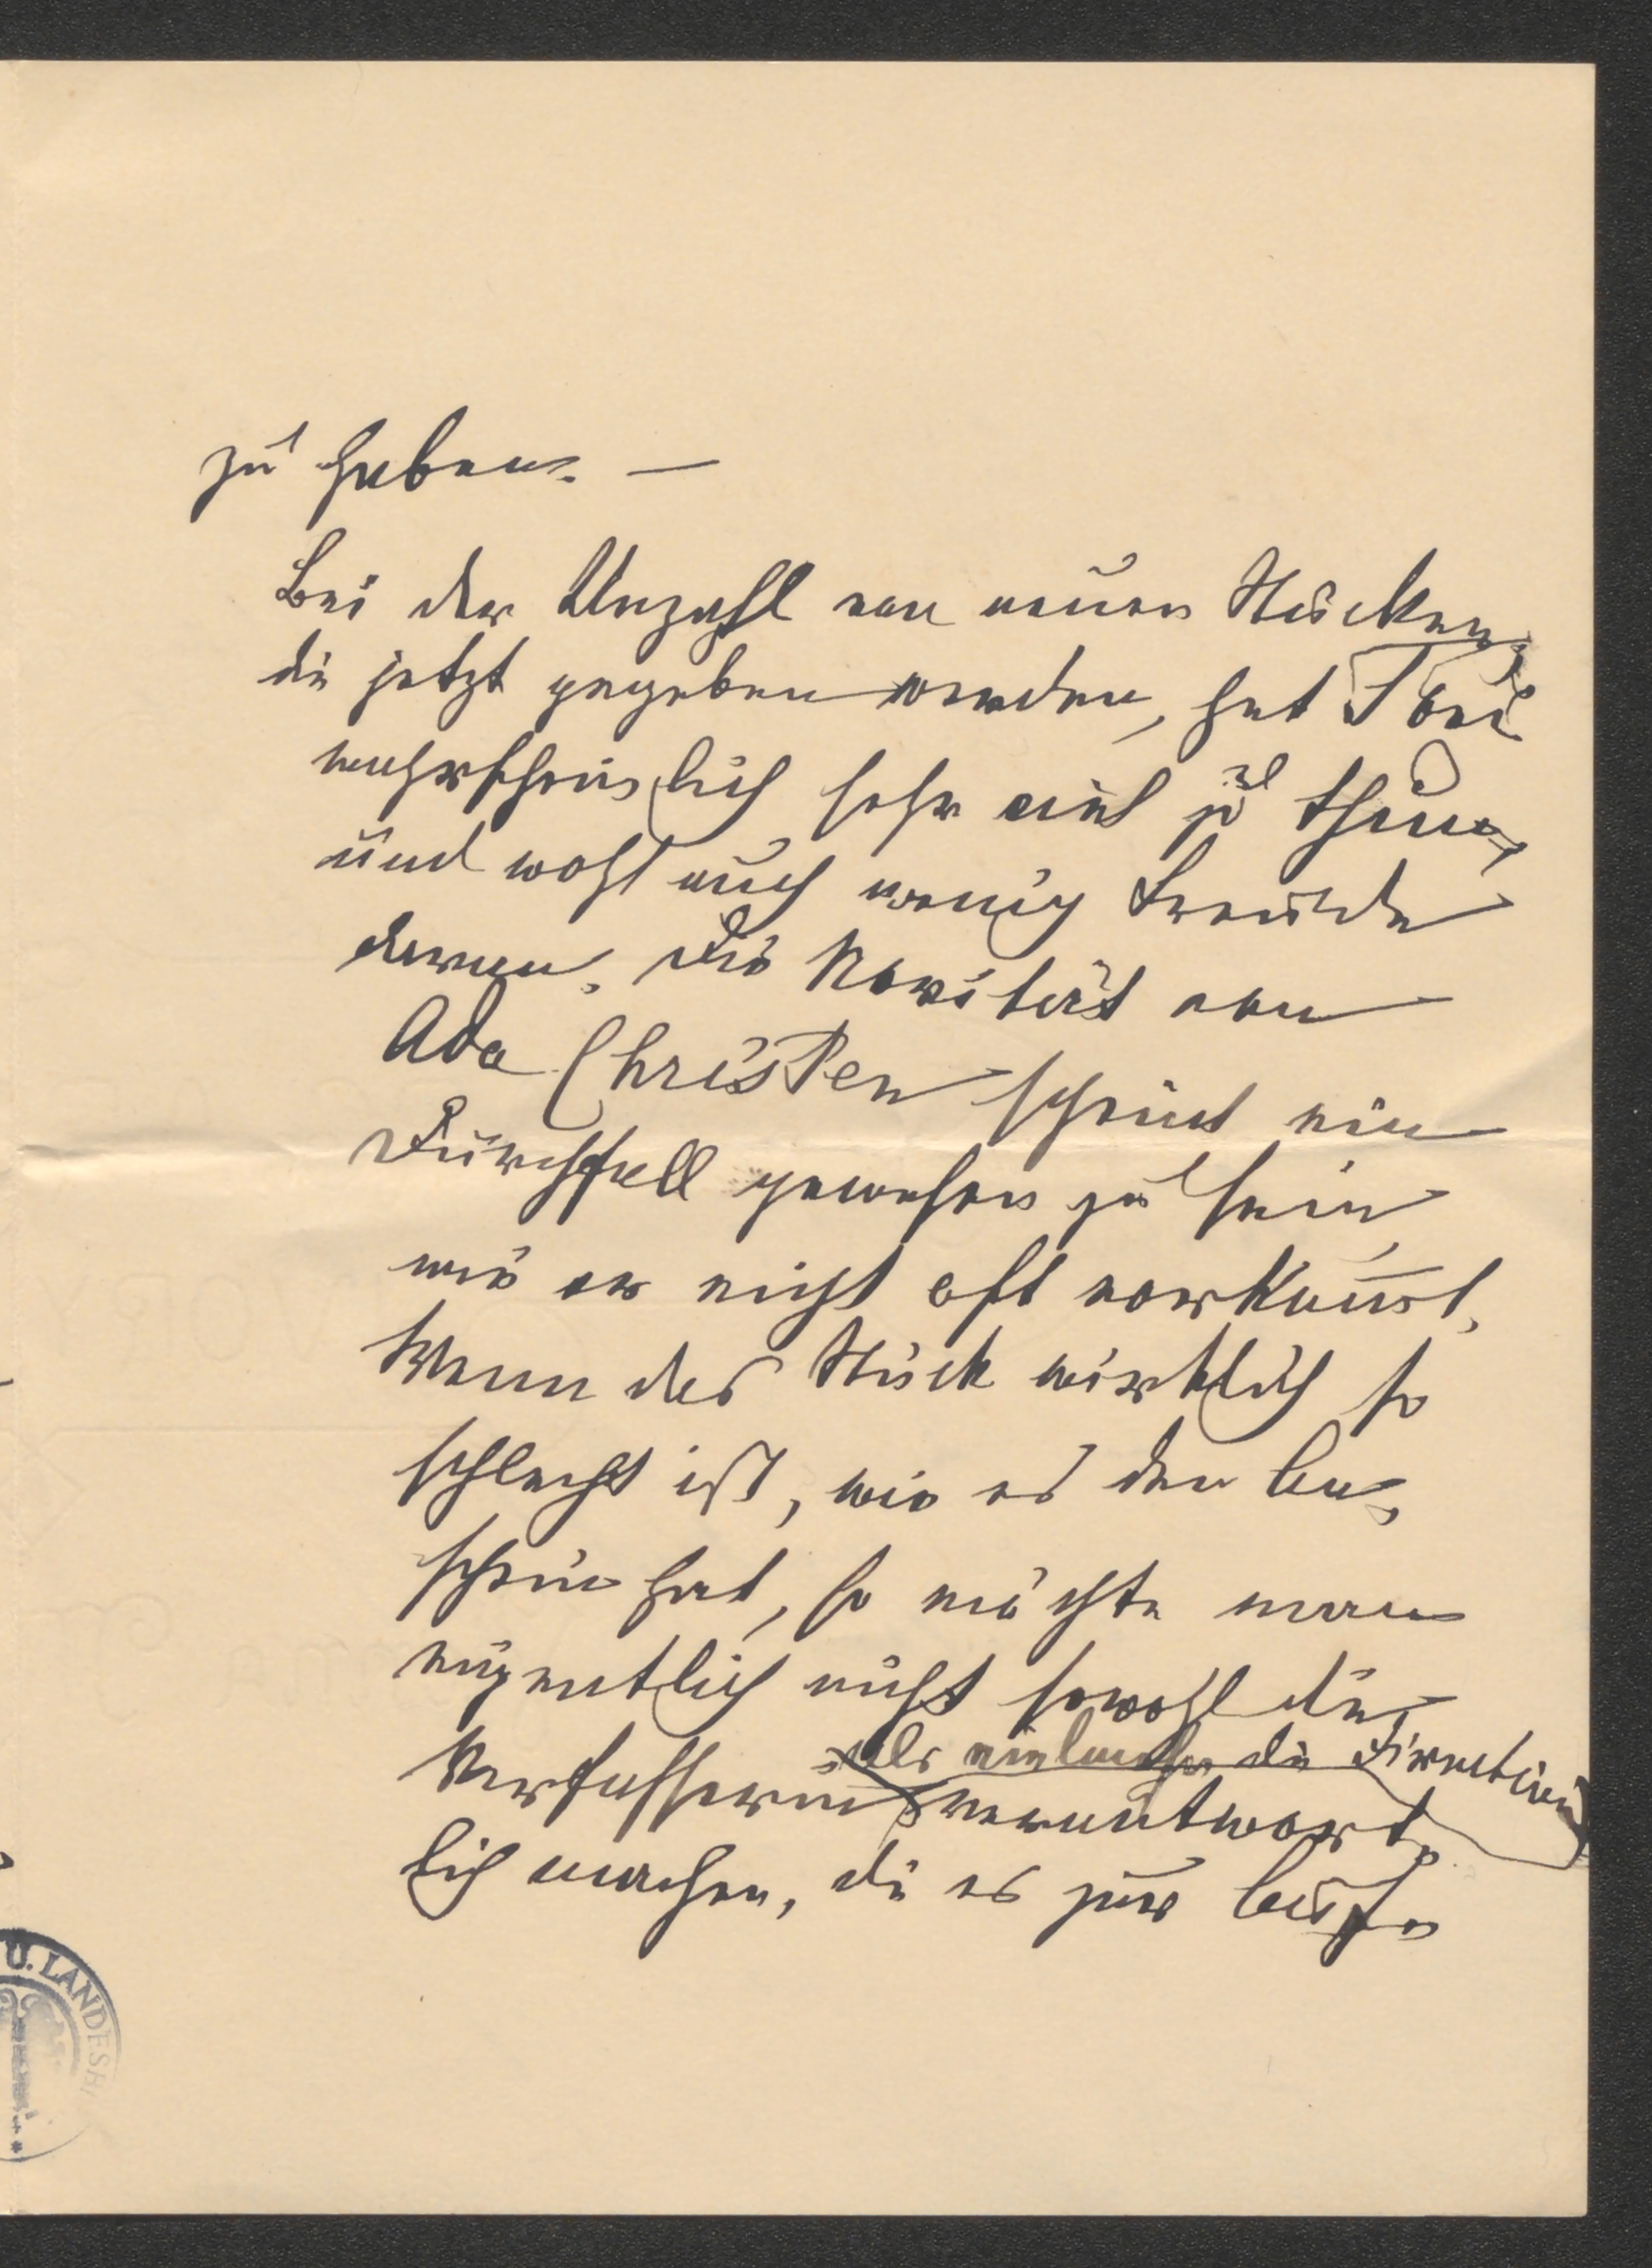 zu haben. —
Bei der Unzahl von neuen Stücken,
die jetzt gegeben werden, hat Toni
wahrscheinlich sehr viel zu thun,
und wohl auch wenig Freude
daran. Die Novität von
Ada Christen scheint ein
Durchfall gewesen zu sein,
wie er nicht oft vorkommt.
Wenn das Stück wirklich so
schlecht ist, wie es den An-
schein hat, so möchte man
eigentlich nicht sowohl die
als vielmehr die Direction
Verfasserin verantwort-
lich machen, die es zur Auf-
U. LANDESBI